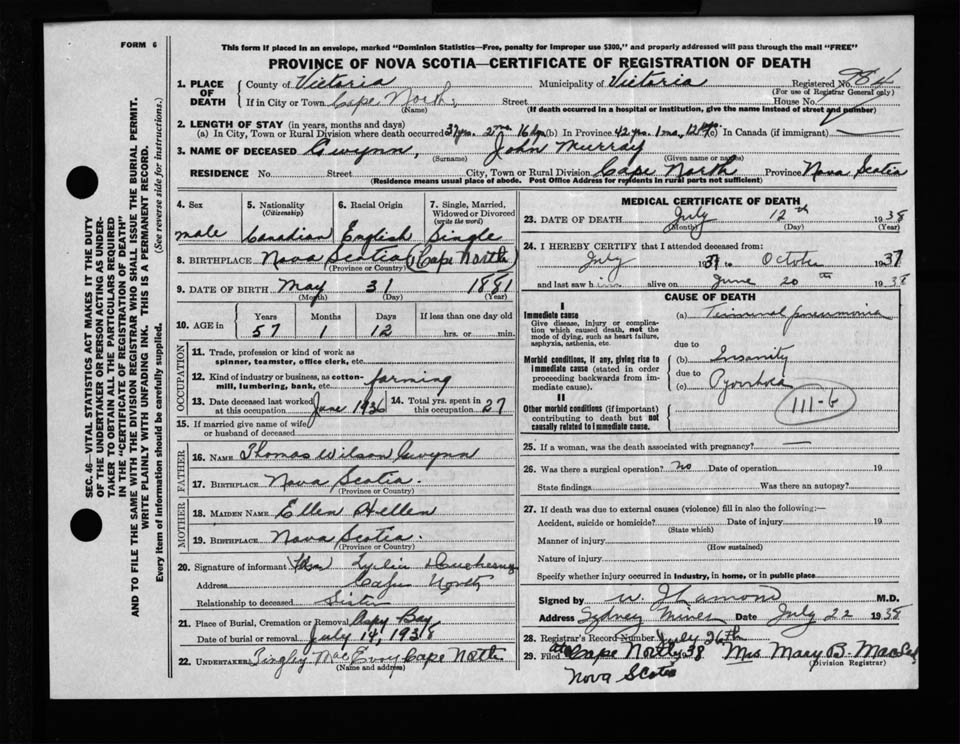 FORM 6
This form if placed in an envelope, marked "Dominion Statistics—Free, penalty for improper use $300," and properly addressed will pass through the mail "FREE"
PROVINCE OF NOVA SCOTIA—CERTIFICATE OF REGISTRATION OF DEATH
SEC. 46—VITAL STATISTICS ACT MAKES IT THE DUTY
OF THE UNDERTAKER OR PERSON ACTING AS UNDER-
TAKER TO OBTAIN ALL THE PARTICULARS REQUIRED
IN THE "CERTIFICATE OF REGISTRATION OF DEATH"
AND TO FILE THE SAME WITH THE DIVISION REGISTRAR WHO SHALL ISSUE THE BURIAL PERMIT.
WRITE PLAINLY WITH UNFADING INK. THIS IS A PERMANENT RECORD.
Every item of information should be carefully supplied. (See reverse side for instructions.)
1. PLACE OF DEATH
County of Victoria Municipality of Victoria Registered No. 984
(For use of Registrar General only)
If in City or Town Cape North Street House No.
(Name) (If death occurred in a hospital or institution, give the name instead of street and number)
2. LENGTH OF STAY (in years, months and days)
(a) In City, Town or Rural Division where death occurred (b) In Province 42 yrs. 1 mo. 12 (c) In Canada (if immigrant)
3. NAME OF DECEASED Gwynn, John Murray
(Surname) (Given name or names)
RESIDENCE No. Street City, Town or Rural Division Cape North Province Nova Scotia
(Residence means usual place of abode. Post Office Address for residents in rural parts not sufficient)
4. Sex 5. Nationality (Citizenship) 6. Racial Origin 7. Single, Married, Widowed or Divorced (write the word)
male Canadian English Single
8. BIRTHPLACE Nova Scotia (Cape North)
(Province or Country)
9. DATE OF BIRTH May 31 1881
(Month) (Day) (Year)
10. AGE in Years Months Days If less than one day old
57 1 12 hrs. or min.
OCCUPATION
11. Trade, profession or kind of work as spinner, teamster, office clerk, etc.
12. Kind of industry or business, as cotton-mill, lumbering, bank, etc. farming
13. Date deceased last worked at this occupation June 1936 14. Total yrs. spent in this occupation 27
15. If married give name of wife or husband of deceased
FATHER
16. NAME Thomas Wilson Gwynn
17. BIRTHPLACE Nova Scotia.
(Province or Country)
MOTHER
18. MAIDEN NAME Ellen Hellen
19. BIRTHPLACE Nova Scotia.
(Province or Country)
20. Signature of informant
Address Cape North
Relationship to deceased Sister
21. Place of Burial, Cremation or Removal Aspy Bay
Date of burial or removal July 14, 1938
22. UNDERTAKER Cape North
(Name and address)
MEDICAL CERTIFICATE OF DEATH
23. DATE OF DEATH July 12th 1938
(Month) (Day) (Year)
24. I HEREBY CERTIFY that I attended deceased from:
July 1937 to October 1937
and last saw him alive on June 20th 1938
CAUSE OF DEATH
I
Immediate cause
Give disease, injury or complication which caused death, not the mode of dying, such as heart failure, asphyxia, asthenia, etc.
(a) Terminal pneumonia
due to
Morbid conditions, if any, giving rise to immediate cause (stated in order proceeding backwards from immediate cause).
(b) Insanity
due to
(c) Pyorrhoea
II
Other morbid conditions (if important) contributing to death but not causally related to immediate cause.
111-G
25. If a woman, was the death associated with pregnancy?
26. Was there a surgical operation? no Date of operation 19
State findings Was there an autopsy?
27. If death was due to external causes (violence) fill in also the following:—
Accident, suicide or homicide? Date of injury 19
(State which)
Manner of injury
(How sustained)
Nature of injury
Specify whether injury occurred in industry, in home, or in public place
Signed by M.D.
Address Sydney Mines Date July 22 1938
28. Registrar's Record Number July 26th
29. Filed at Cape North, 38 Mrs Mary B.
(Division Registrar)
Nova Scotia